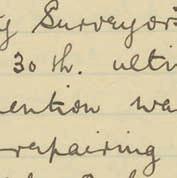 y Surveyor's
30th. ulti
ention wa
repairing